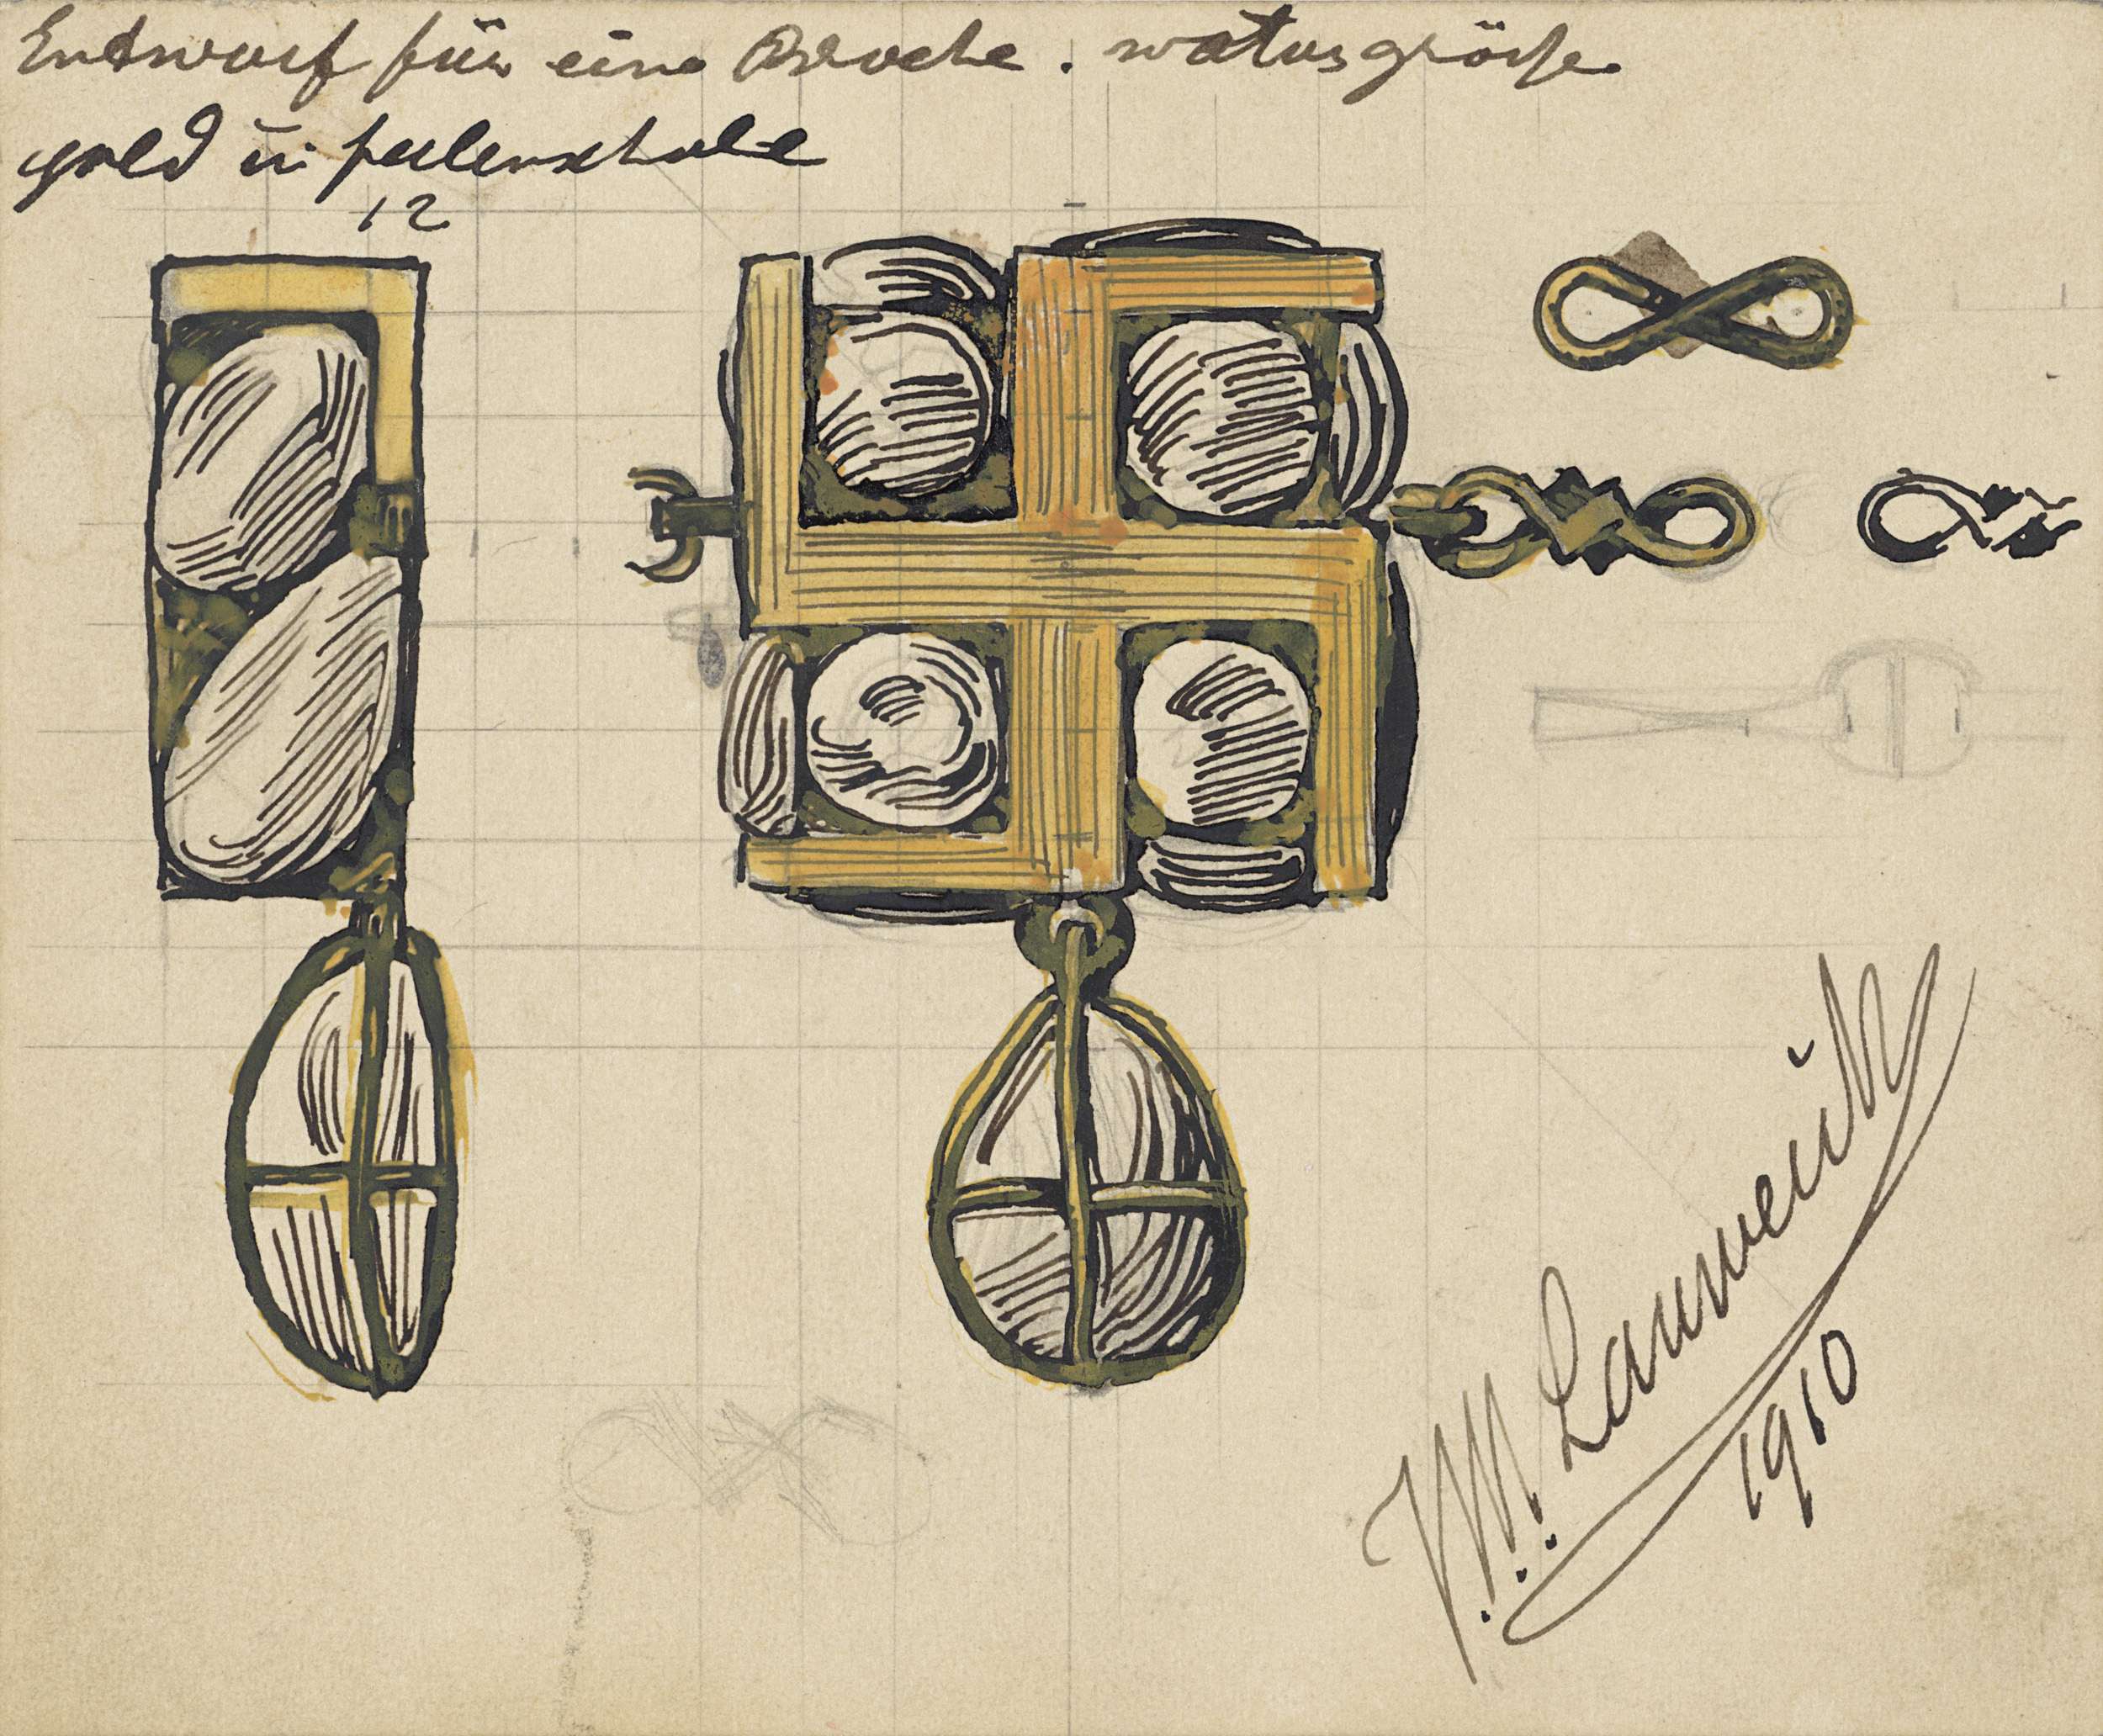 Entwurf für eine Broche. naturgrösse
gold ū. perlenschale
12
J.L.M. Lauweriks
1910